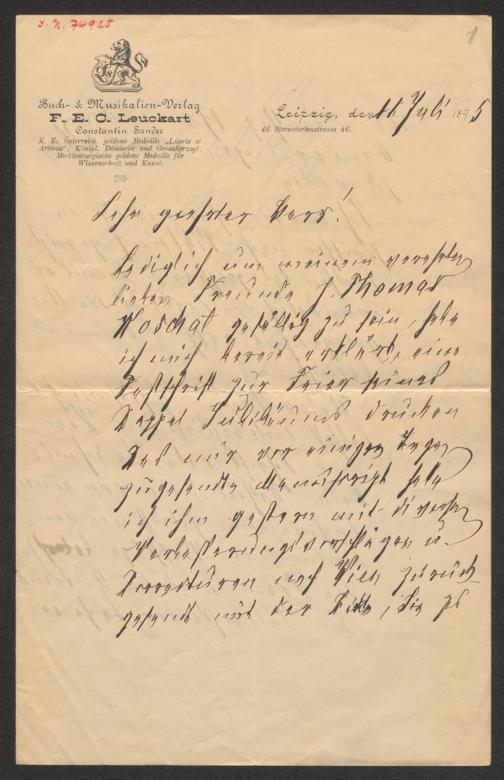 I. N. 74925
1
Buch- & Musikalien-Verlag
F. E. C. Leuckart
Constantin Sander
K. K. Österreich. goldene Medaille „Literis et
Artibus", Königl. Dänische und Grossherzogl.
Mecklenburgische goldene Medaille für
Wissenschaft und Kunst.
Leipzig, den 11 Juli 1895
46 Sternwartenstrasse 46.
Sehr geehrter Herr!
Lediglich um meinem verehrten
lieben Freunde Thomas
Koschat gefällig zu sein, habe
ich mich bereit erklärt, eine
Festschrift zur Feier seines
Doppel Jubiläums drucken
Das mir vor einigen Tagen
zugesandte Manuscript habe
ich ihm gestern mit diversen
Verbesserungsvorschlägen u.
Correcturen nach Wien zurück
gesandt mit der Bitte, sie zu